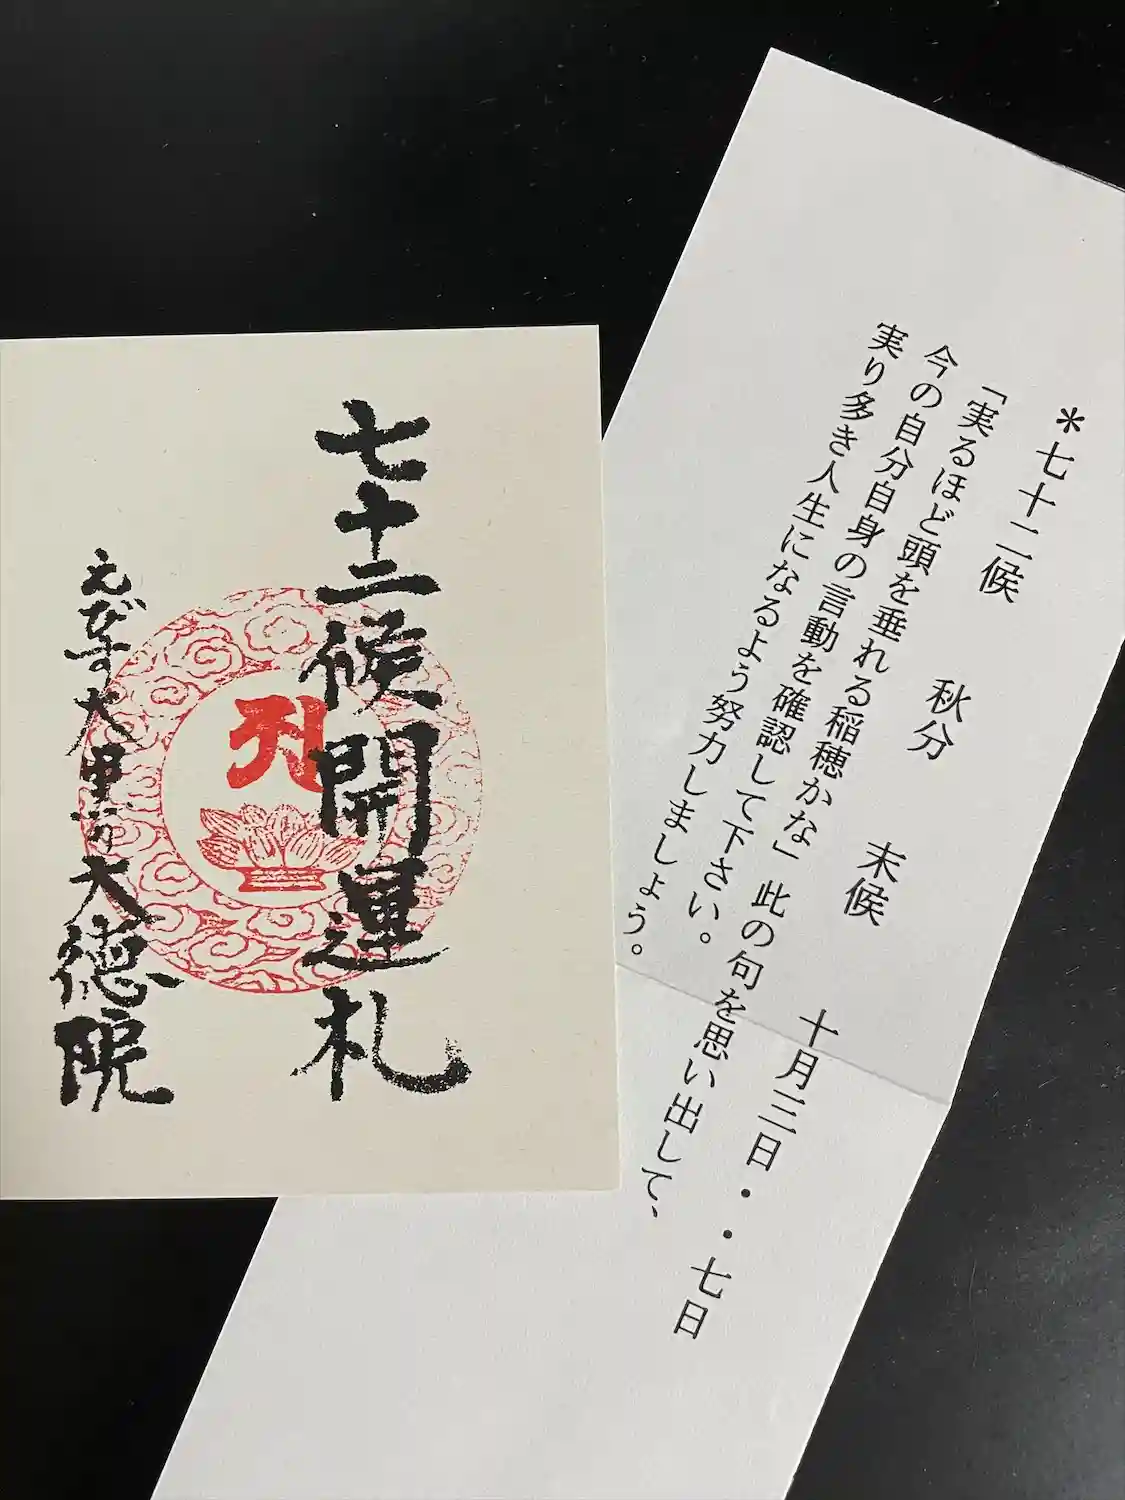 七十二候開運札
えびす大黒天大徳院
＊七十二候　秋分　末候　十月三日・・七日
「実るほど頭を垂れる稲穂かな」此の句を思い出して、
今の自分自身の言動を確認して下さい。
実り多き人生になるよう努力しましょう。